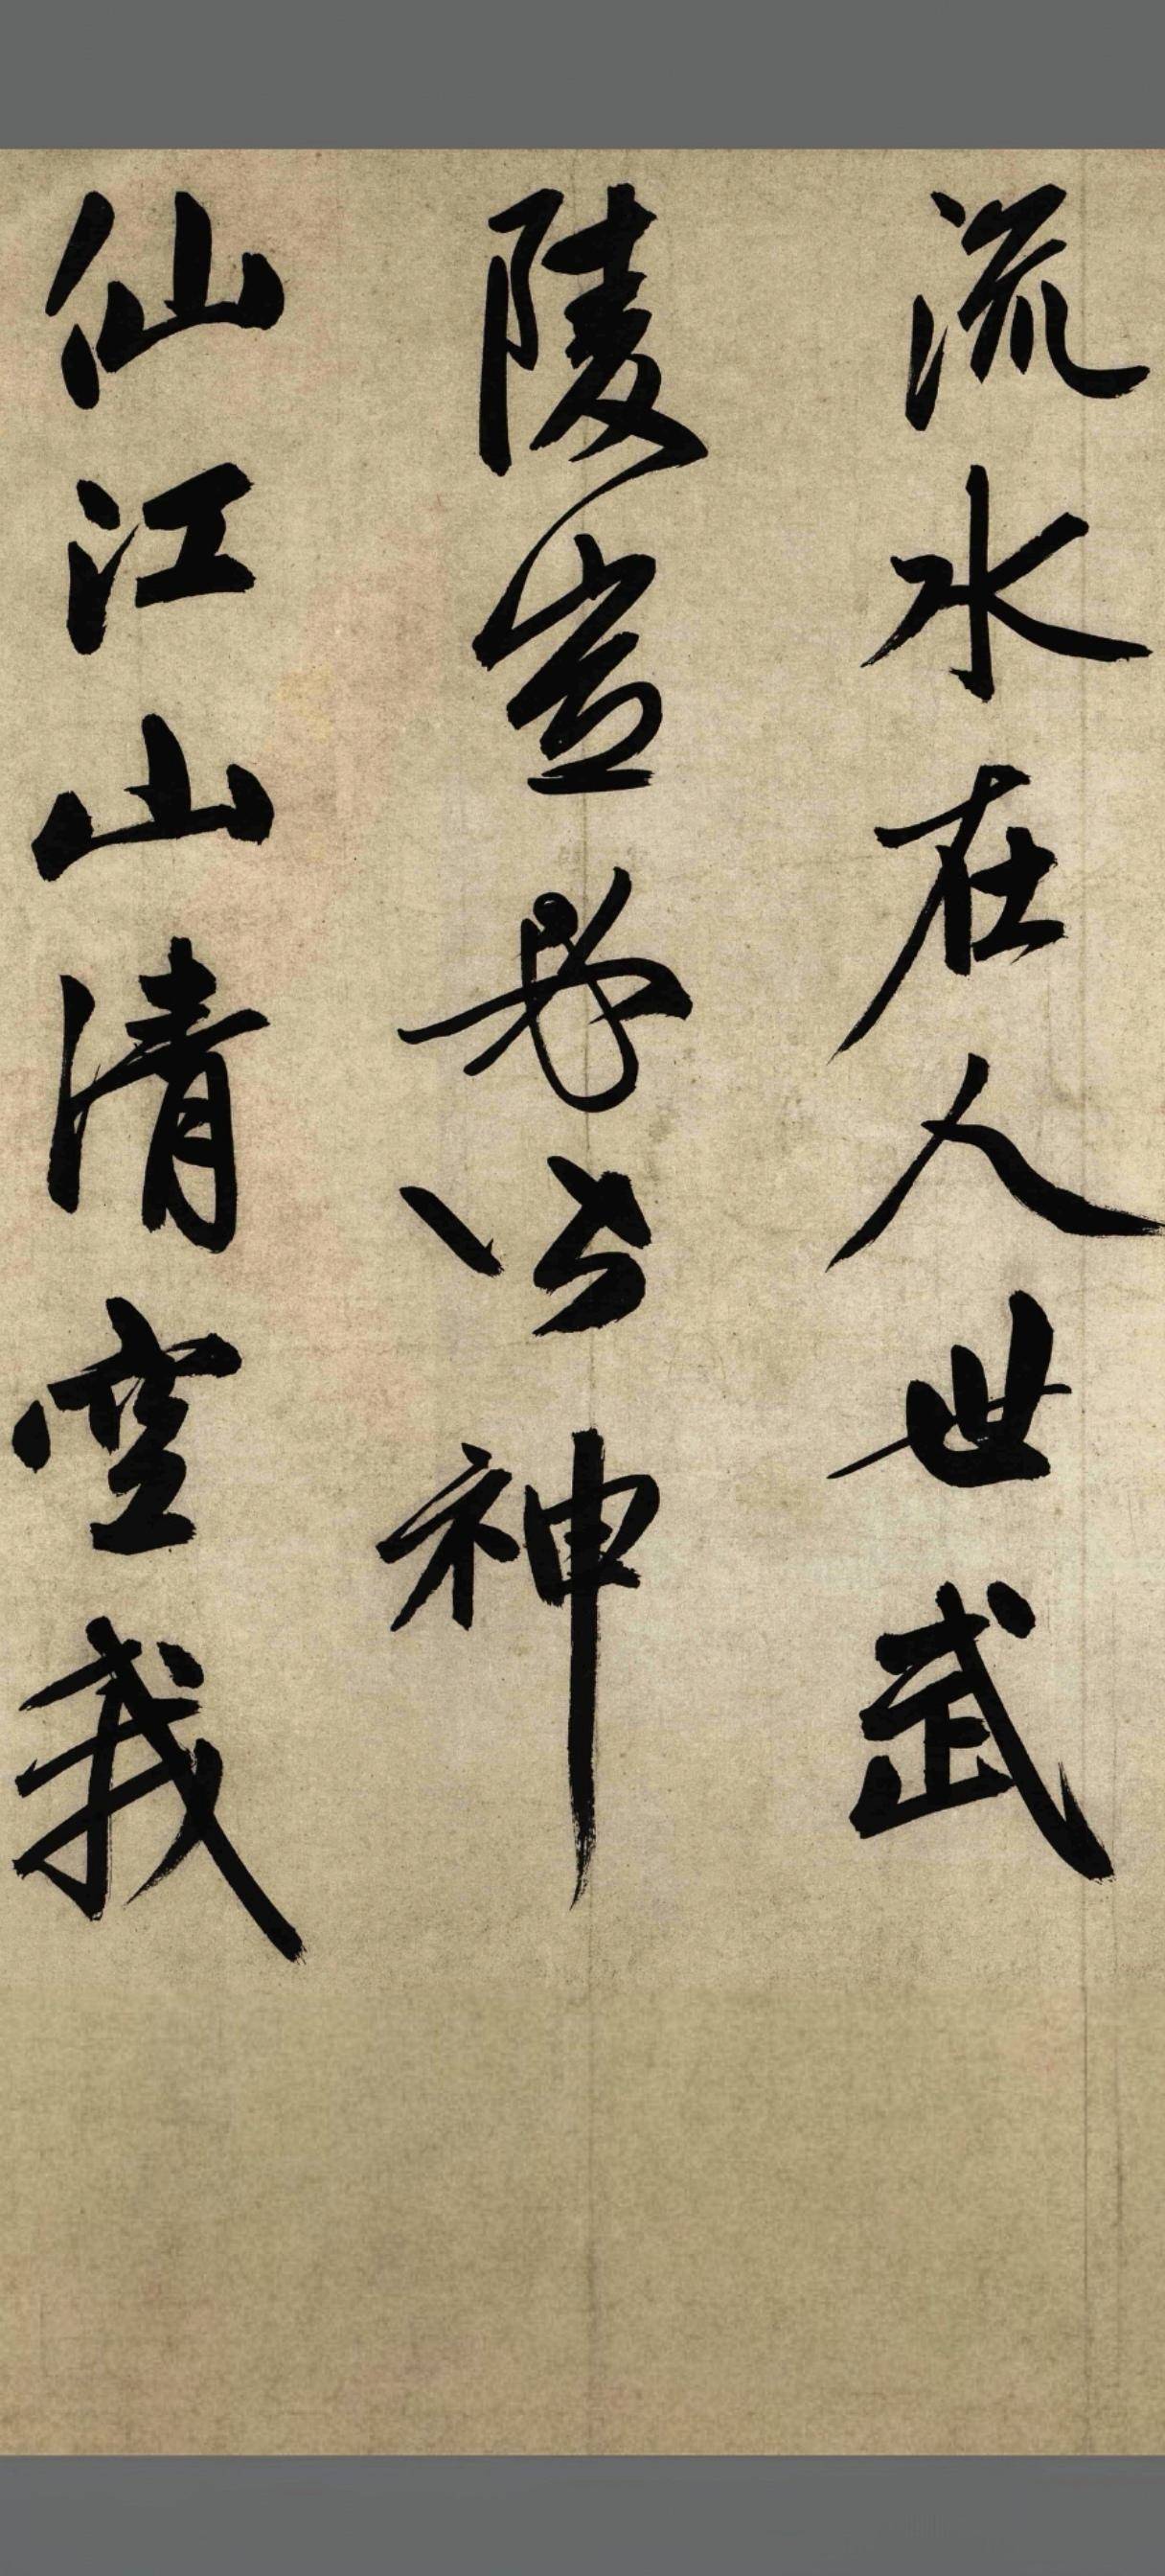 流水在人世武
陵豈必皆神
仙江山清空我